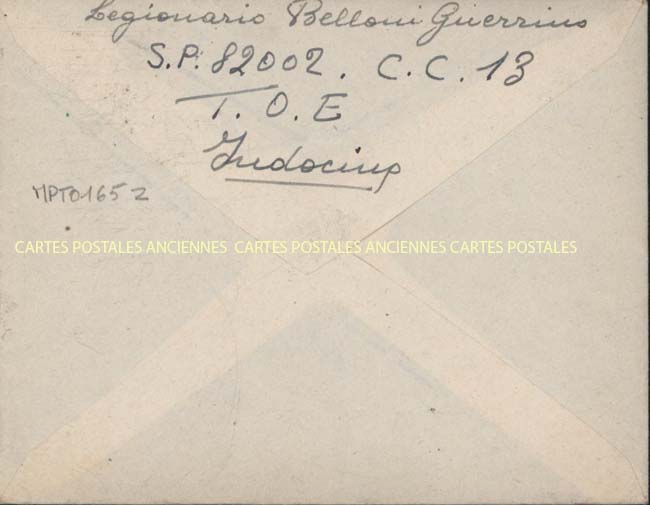 Legionario Belloni Guerrino
S.P. 82002. C.C. 13
T.O.E
Indocina
MPTO1652
CARTES POSTALES ANCIENNES CARTES POSTALES ANCIENNES CARTES POSTALES